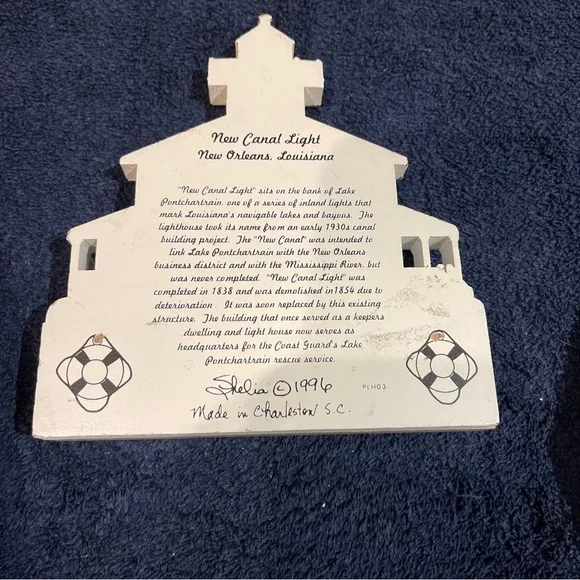 New Canal Light
New Orleans, Louisiana
"New Canal Light" sits on the bank of Lake
Pontchartrain, one of a series of inland lights that
mark Louisiana's navigable lakes and bayous. The
lighthouse took its name from an early 1930s canal
building project. The "New Canal" was intended to
link Lake Pontchartrain with the New Orleans
business district and with the Mississippi River, but
was never completed. "New Canal Light" was
completed in 1838 and was demolished in 1854 due to
deterioration. It was soon replaced by this existing
structure. The building that once served as a keepers
dwelling and light house now serves as
headquarters for the Coast Guard's Lake
Pontchartrain rescue service.
Shelia © 1996
PLH03
Made in Charleston S.C.